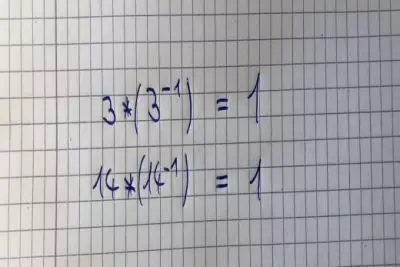 3*(3⁻¹) = 1
14*(14⁻¹) = 1